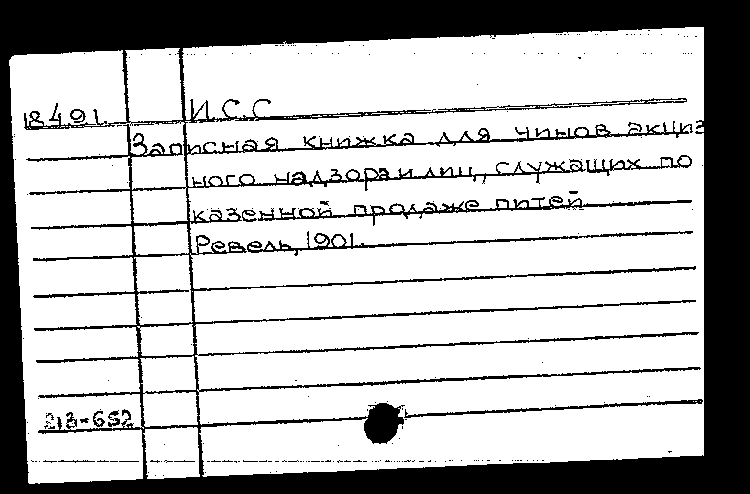 18491. И.С.С
Записная книжка для чинов акциз
ного надзора и лиц, служащих по
казенной продаже питей
Ревель, 1901.
213-652